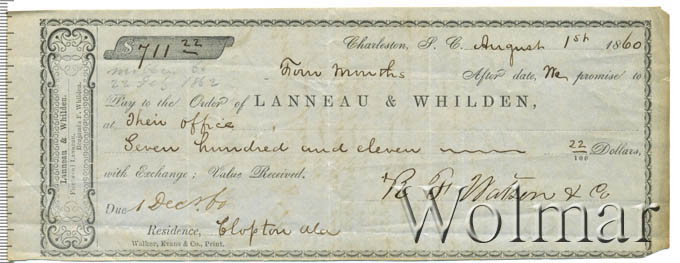 $711 22
Charleston, S. C. August 1st 1860
22 Feb 1862
Four Months After date, We promise to
Pay to the Order of LANNEAU & WHILDEN,
at Their office
Seven hundred and eleven 22/100 Dollars,
with Exchange; Value Received.
R F Watson & Co
Due 1 Dec/60
Residence, Clopton Ala
Walker, Evans & Co., Print.
Lanneau & Whilden.
Fleetwood Lanneau,
Benjamin F. Whilden.
Wolmar